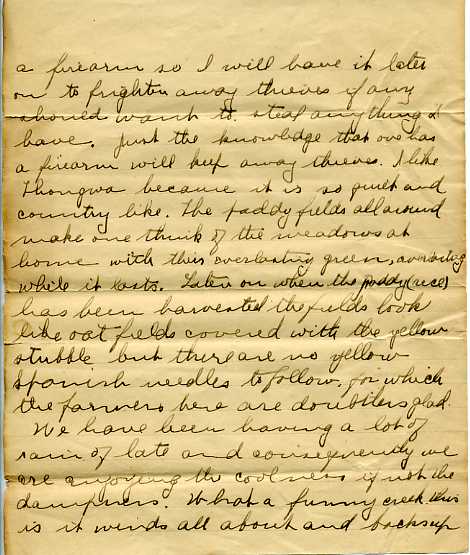 a firearm so I will have it later
on to frighten away thieves if any
should want to steal anything I
have. Just the knowledge that one has
a firearm will keep away thieves. I like
Thongwa because it is so quiet and
country like. The paddy fields all around
make one think of the meadows at
home with their everlasting green, everlasting
while it lasts. Later on when the paddy (rice)
has been harvested the fields look
like oat fields covered with the yellow
stubble but there are no yellow
Spanish needles to follow, for which
the farmers here are doubtless glad.
We have been having a lot of
rain of late and consequently we
are enjoying the coolness if not the
dampness. What a funny creek this
is it winds all about and backs up